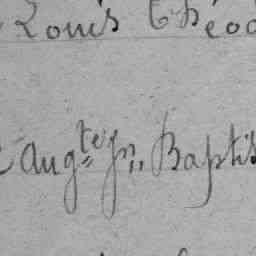 Louis Théod
Augte Jn Baptis